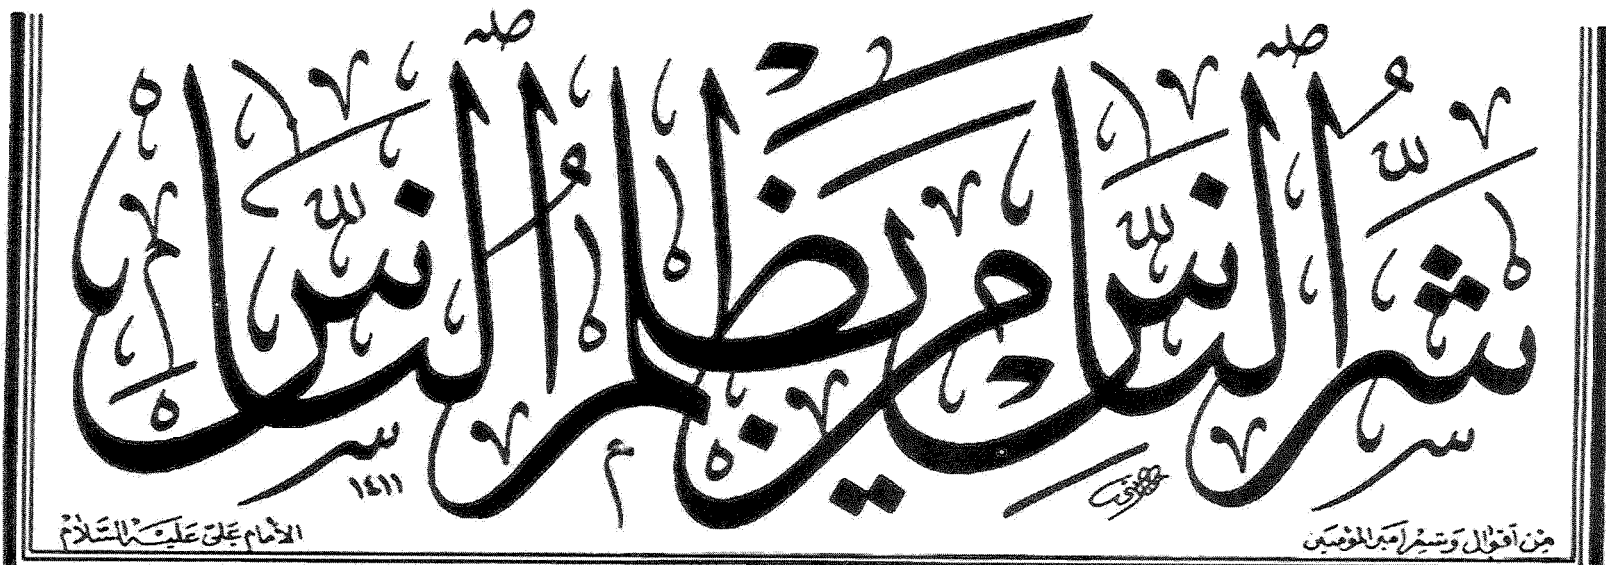 شَرُّ النَّاسِ مَنْ يَظْلِمُ النَّاسَ
١٤١١
من أقوال وسير أمير المؤمنين
الإمام علي عليه السلام